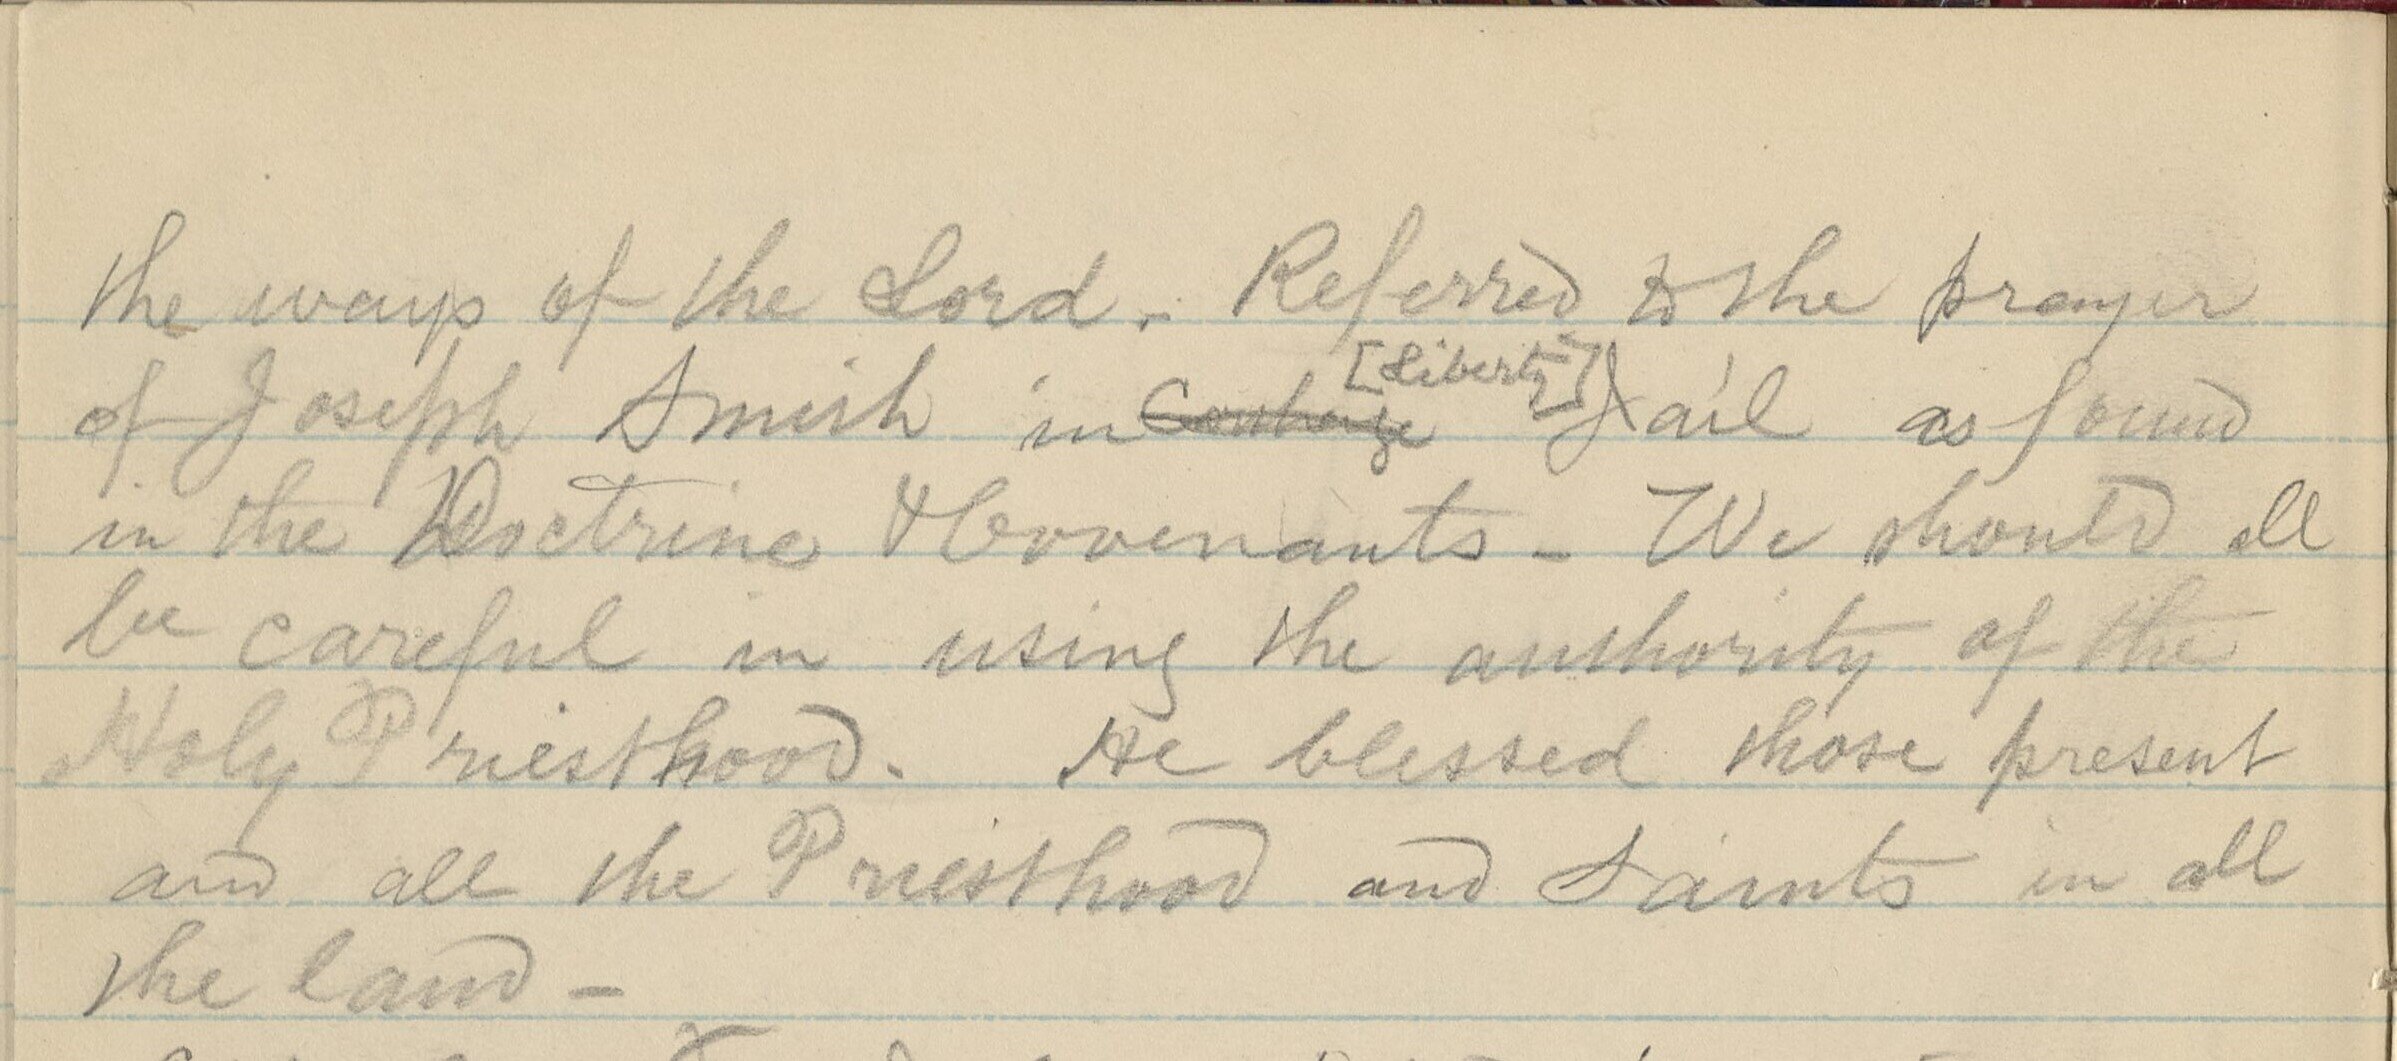 the ways of the Lord. Referred to the prayer
of Joseph Smith in Carthage [Liberty] Jail as found
in the Doctrine & Covenants - We should all
be careful in using the authority of the
Holy Priesthood. He blessed those present
and all the Priesthood and Saints in all
the land -